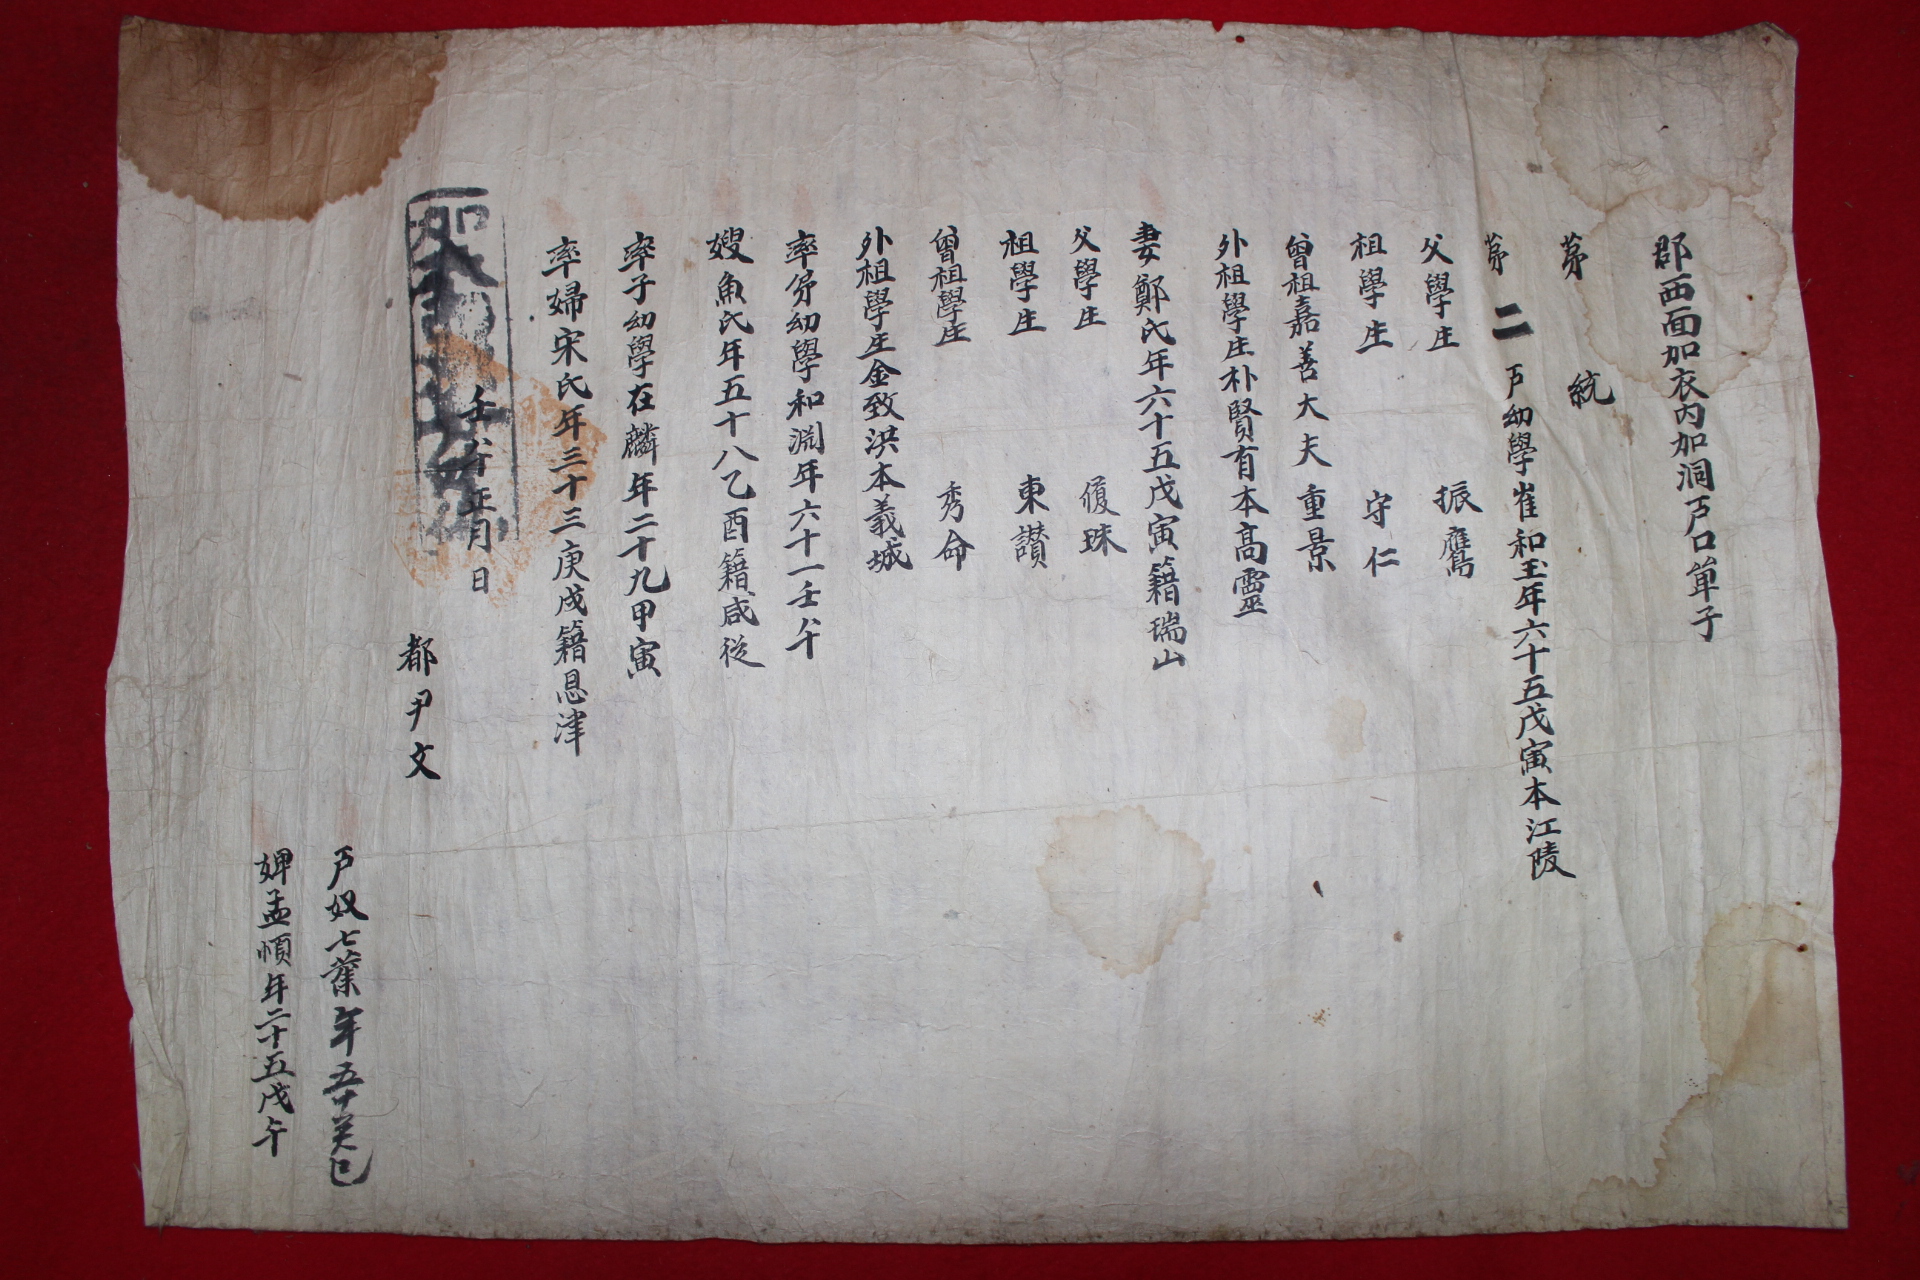 郡西面加衣內加洞戶口單子
苐 統
苐 二 戶幼學崔和玉年六十五戊寅本江陵
父學生 振鷹
祖學生 守仁
曾祖嘉善大夫重景
外祖學生朴賢有本高靈
妻鄭氏年六十五戊寅籍瑞山
父學生 復珠
祖學生 東讃
曾祖學生 秀命
外祖學生金致洪本義城
率弟幼學和渊年六十一壬午
嫂魚氏年五十八乙酉籍咸從
率子幼學在麟年二十九甲寅
率婦宋氏年三十三庚戌籍恩津
壬午正月 日
都尹文
戶奴七葉年五十癸巳
婢孟順年二十五戊午